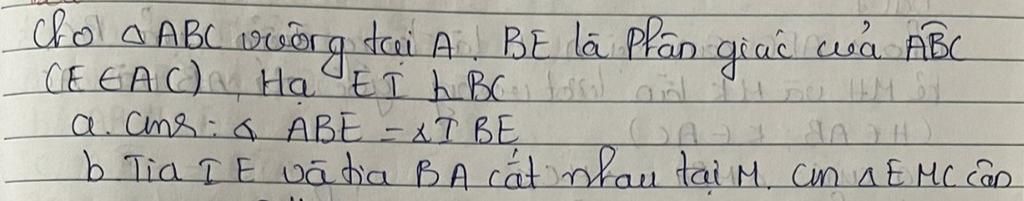 Cho ΔABC vuông tại A. BE là Phân giác của ABC
(E ∈ AC), Hạ EI ⊥ BC
a. cmr: Δ ABE = Δ IBE
b Tia IE và tia BA cắt nhau tại M. cm ΔEMC cân